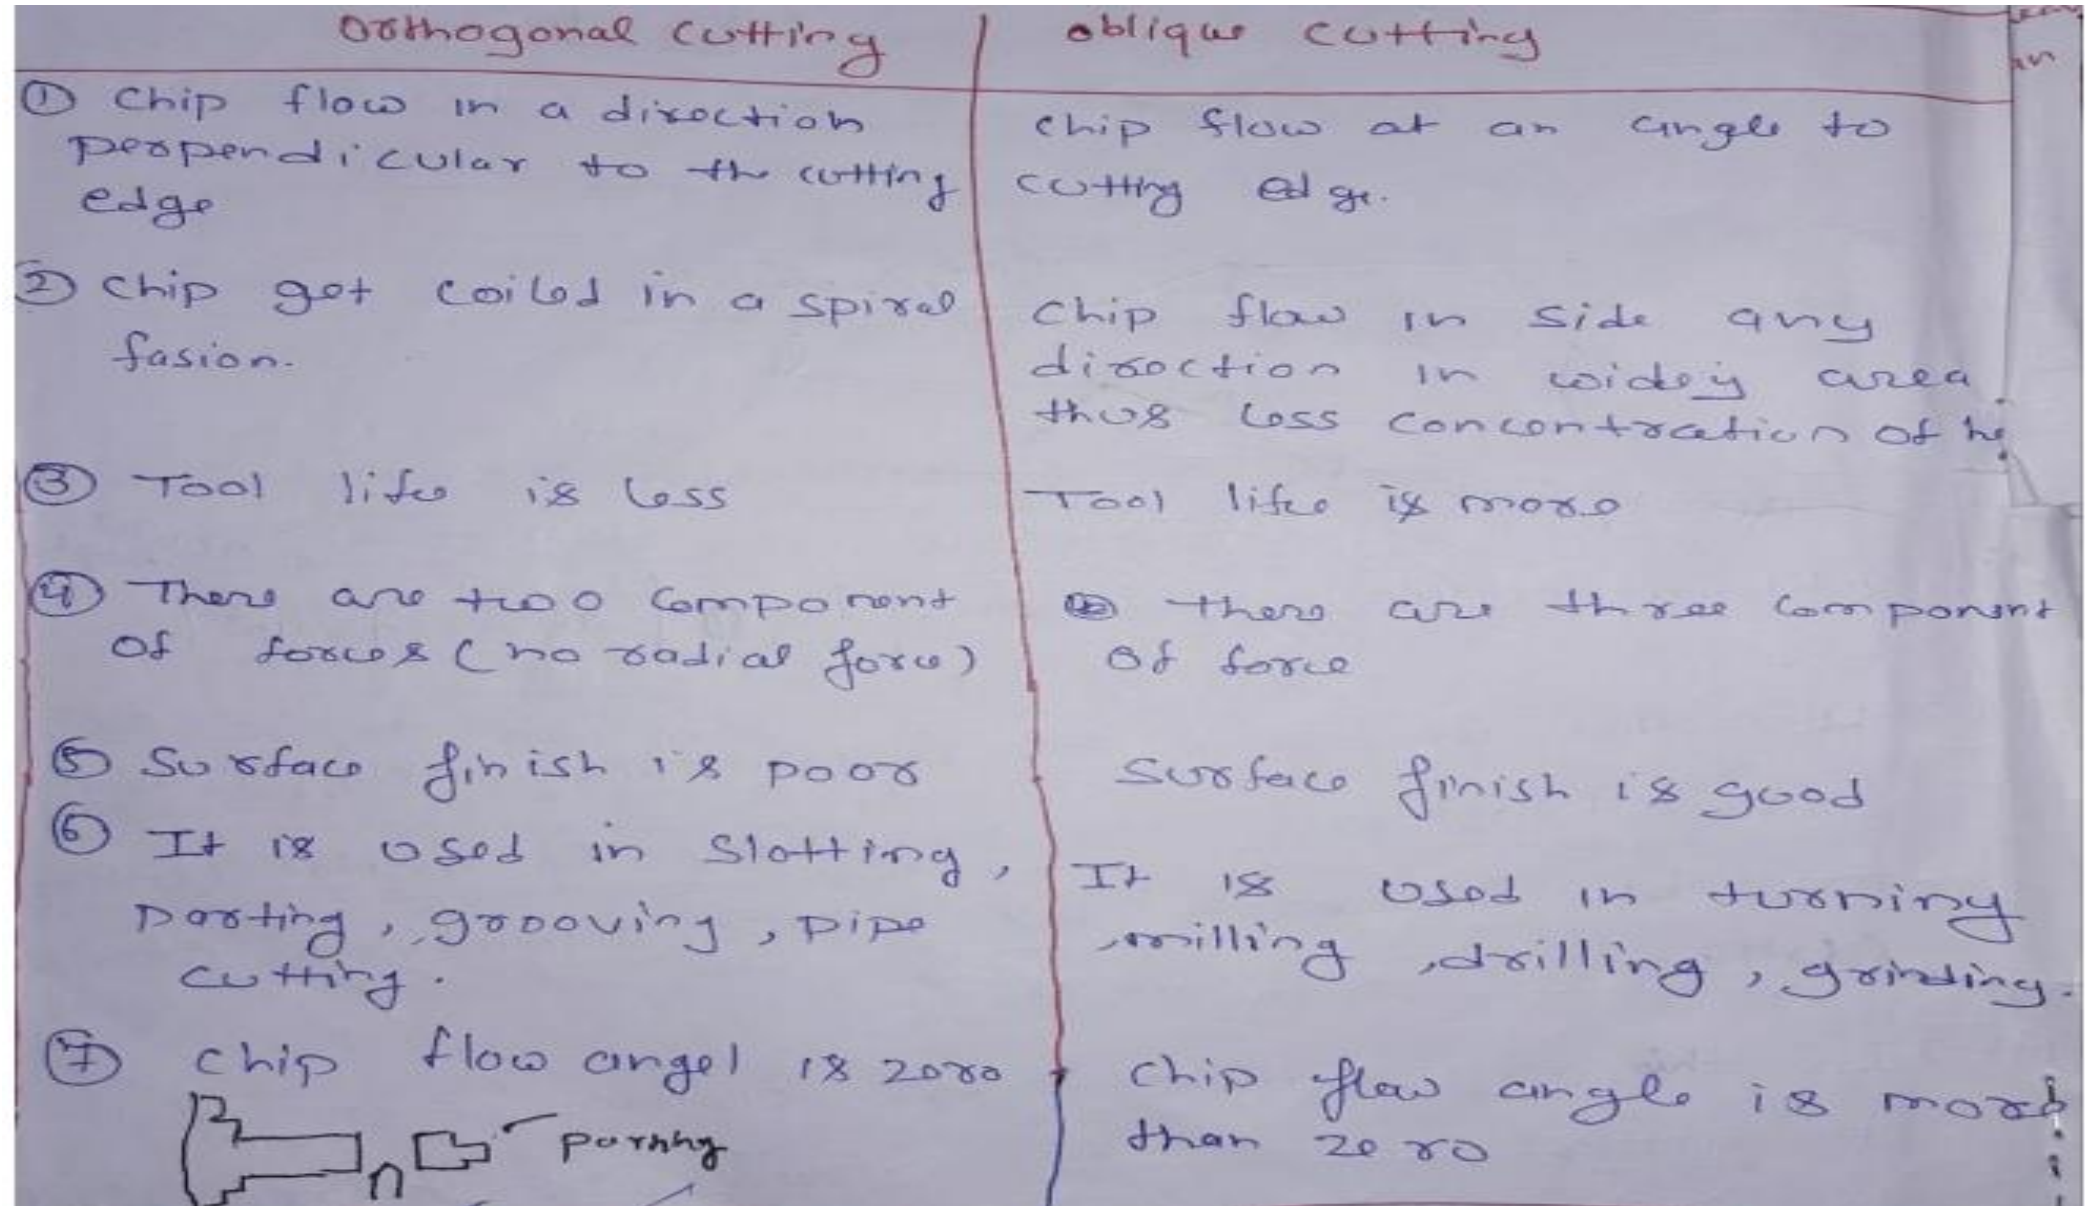 Orthogonal cutting
oblique cutting
① Chip flow in a direction
perpendicular to the cutting
edge
chip flow at an angle to
cutting edge.
② chip get coiled in a spiral
fasion.
Chip flow in side any
direction in widely area
thus less concentration of
③ Tool life is less
Tool life is more
④ There are two component
of forces (no radial force)
there are three component
of force
⑤ Surface finish is poor
Surface finish is good
⑥ It is used in slotting,
parting, grooving, pipe
cutting.
It is used in turning
,milling ,drilling, grinding.
⑦ chip flow angel is zero
chip flow angle is more
than zero
parting